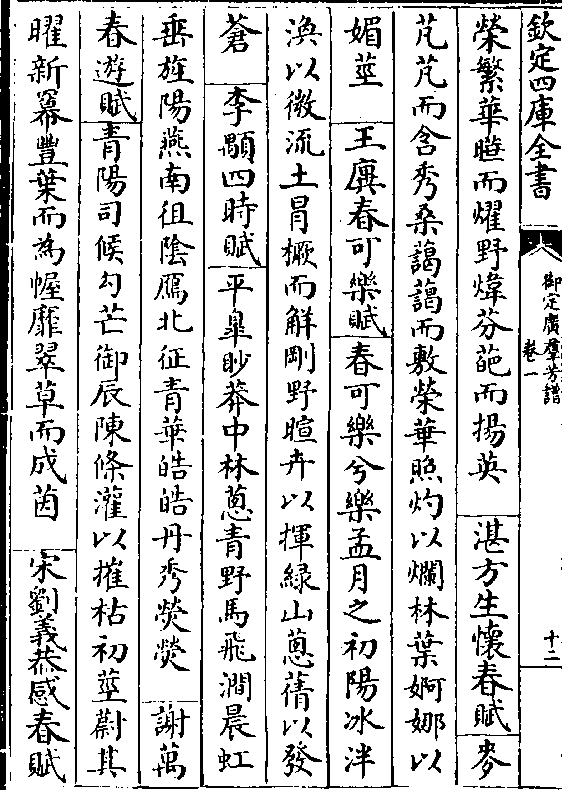 欽定四庫全書
御定廣羣芳譜
卷一
十二
榮繁華曄而燿野煒芬葩而揚英 湛方生懷春賦 麥
芃芃而含秀桑藹藹而敷榮華照灼以爛林葉婀娜以
媚莖 王廙春可樂賦 春可樂兮樂孟月之初陽冰泮
渙以微流土冒橛而解剛野暄卉以揮緑山蔥蒨以發
蒼 李顒四時賦 平臯眇莽中林蔥青野馬飛澗晨虹
垂旌陽燕南徂陰鴈北征青華皓皓丹秀熒熒 謝萬
春遊賦 青陽司候勾芒御辰陳條灌以摧枯初莖蔚其
曜新冪豐葉而為幄靡翠草而成茵 宋劉義恭感春賦